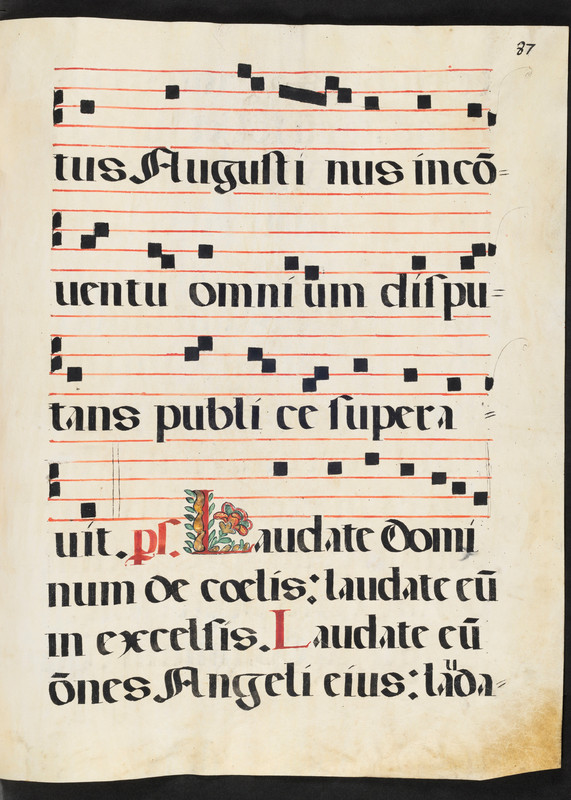 87
tus Auguſti nus incō=
uentu omni um diſpu=
tans publi ce ſupera=
uit. pſ. Laudate Domi
num de cœlis: laudate eū
in excelſis. Laudate eū
ōnes Angeli eius: laūda=